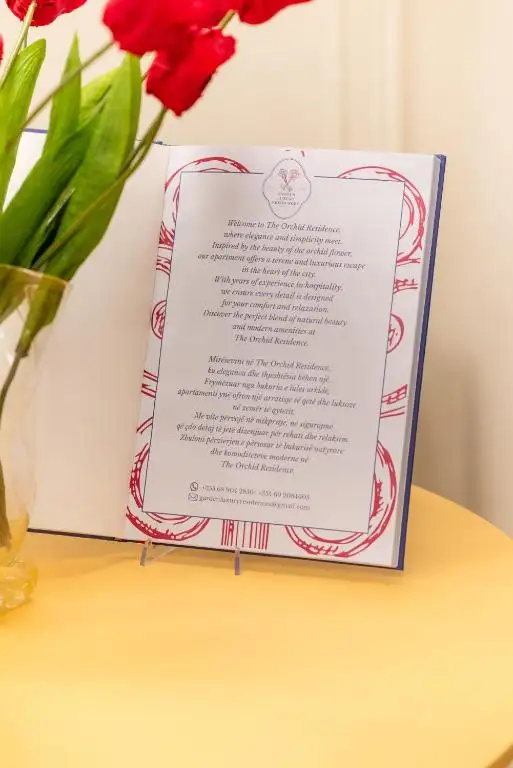 Welcome to The Orchid Residence,
where elegance and simplicity meet.
Inspired by the beauty of the orchid flower,
our apartment offers a serene and luxurious escape
in the heart of the city.
With years of experience in hospitality,
we ensure every detail is designed
for your comfort and relaxation.
Discover the perfect blend of natural beauty
and modern amenities at
The Orchid Residence.
Mirësevini në The Orchid Residence,
ku eleganca dhe thjeshtësia bëhen një.
Frymëzuar nga bukuria e lules orkide,
apartamenti ynë ofron një arratisje të qetë dhe luksoze
në zemër të qytetit.
Me vite përvojë në mikpritje, ne sigurojmë
që çdo detaj të jetë dizenjuar për rehati dhe relaksim.
Zbuloni përzierjen e përsosur të bukurisë natyrore
dhe komoditeteve moderne në
The Orchid Residence.